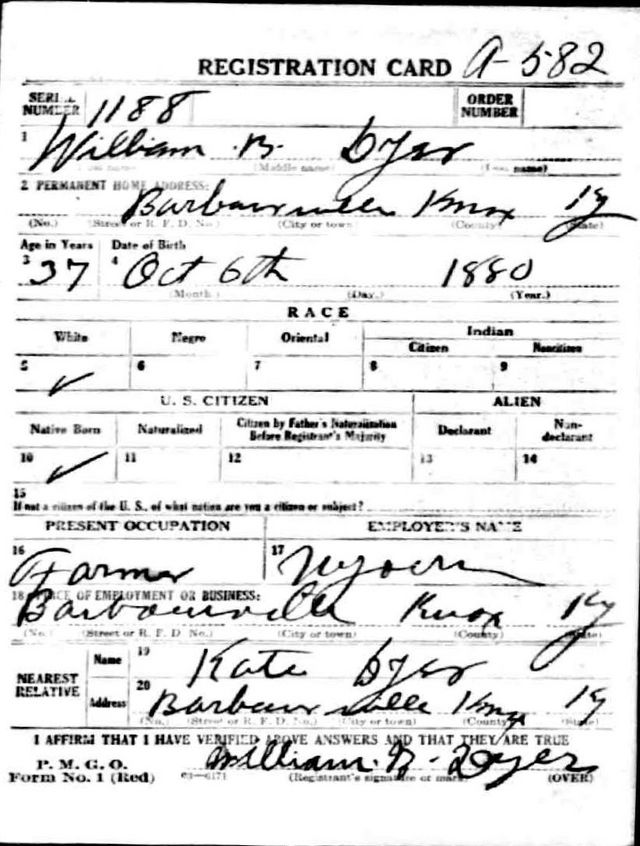 REGISTRATION CARD A-582
SERIAL NUMBER 1188 ORDER NUMBER
1 William B. Dyer
(First name) (Middle name) (Last name)
2 PERMANENT HOME ADDRESS:
Barbourville Knox Ky
(No.) (Street or R. F. D. No.) (City or town) (County) (State)
Age in Years Date of Birth
3 37 4 Oct 6th 1880
(Month.) (Day.) (Year.)
RACE
White Negro Oriental Indian
Citizen Noncitizen
5 ✓ 6 7 8 9
U. S. CITIZEN ALIEN
Native Born Naturalized Citizen by Father's Naturalization Before Registrant's Majority Declarant Non-declarant
10 ✓ 11 12 13 14
15
If not a citizen of the U. S., of what nation are you a citizen or subject?
PRESENT OCCUPATION EMPLOYER'S NAME
16 Farmer 17
18 PLACE OF EMPLOYMENT OR BUSINESS:
Barbourville Knox Ky
(No.) (Street or R. F. D. No.) (City or town) (County) (State)
NEAREST RELATIVE
Name 19 Kate Dyer
Address 20 Barbourville Knox Ky
(No.) (Street or R. F. D. No.) (City or town) (County) (State)
I AFFIRM THAT I HAVE VERIFIED ABOVE ANSWERS AND THAT THEY ARE TRUE
P. M. G. O.
Form No. 1 (Red) 03—6171 William. B. Dyer
(Registrant's signature or mark) (OVER)